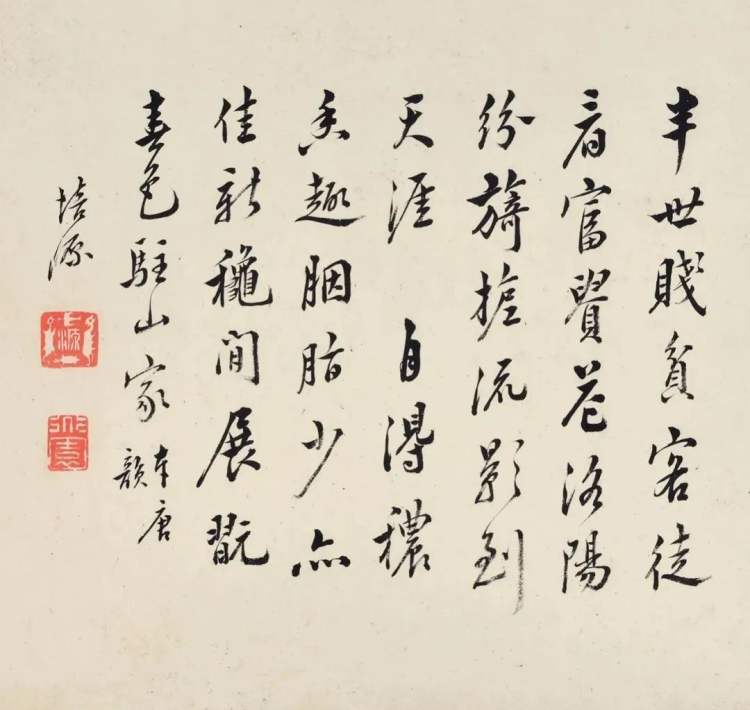 半世賤貧客徒
看富貴花洛陽
紛旖旎流影到
天涯 自得穠
香趣胭脂少亦
佳新穐間展翫
春色駐山家
本唐
韻
培源